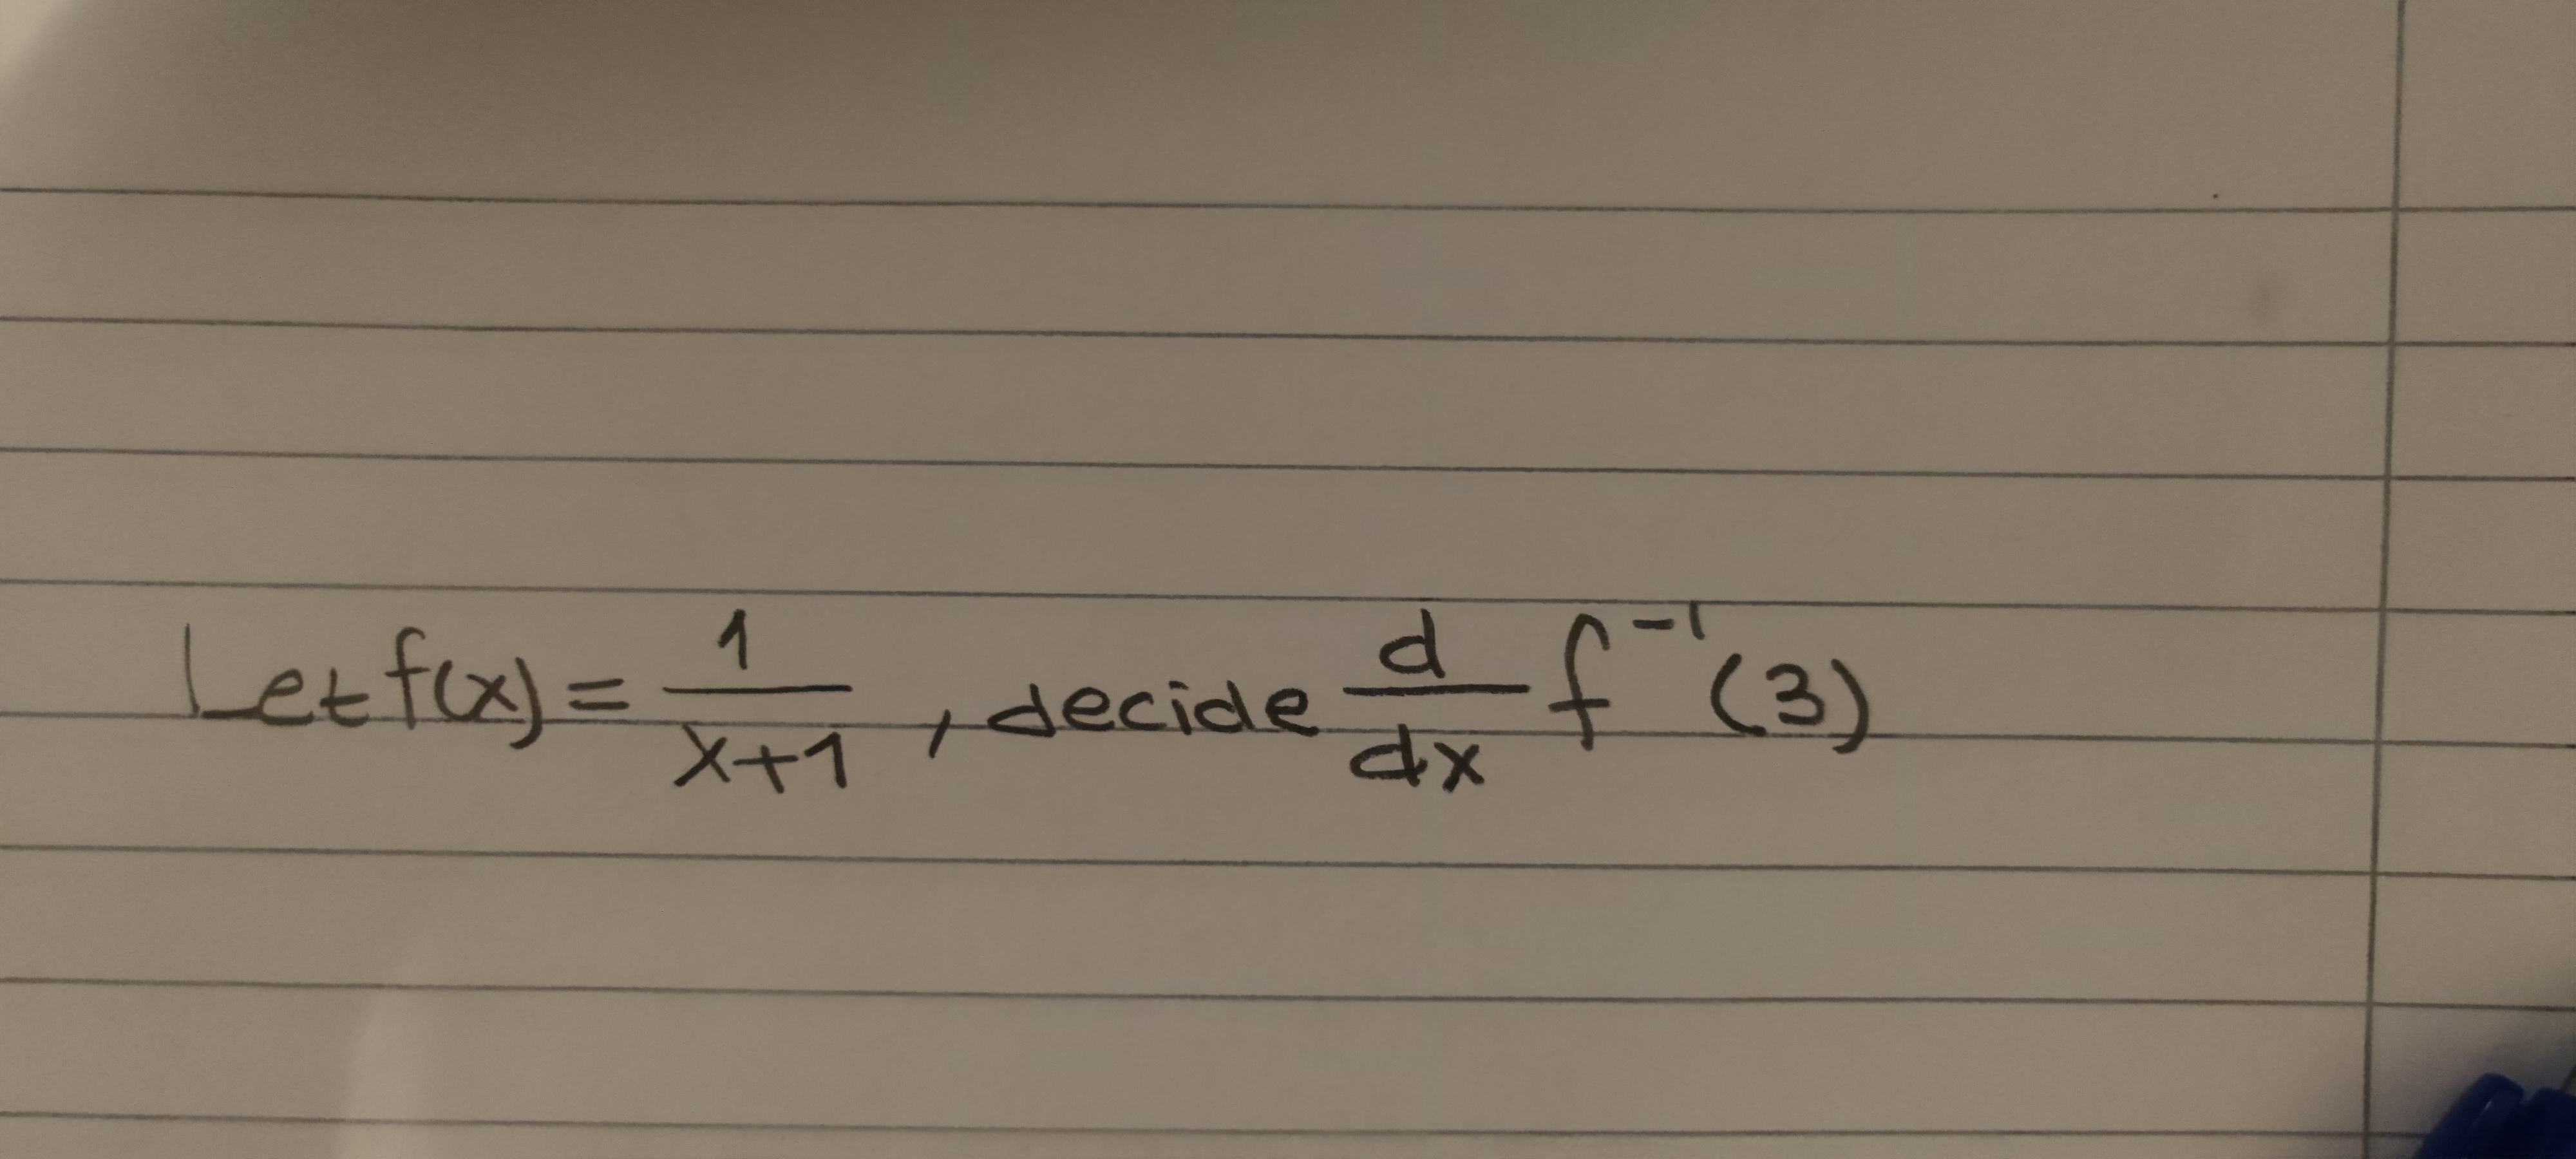 Let f(x) = 1/(x+1) , decide d/dx f⁻¹(3)